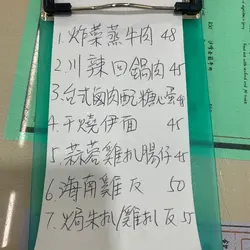 1.炸菜蒸牛肉 48
2.川辣回鍋肉 45
3.台式卤肉配糖心蛋
4.干燒伊面 45
5.蒜蓉雞扒腸仔 45
6.海南雞反 50
7.焗朱扒/雞扒反 55